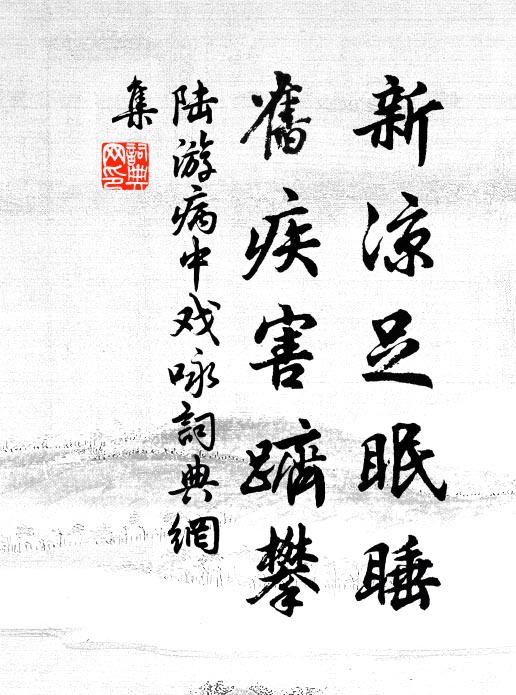 新凉足眠睡
舊疾害躋攀
陆游病中戏咏詞典網
集
詞典
网印